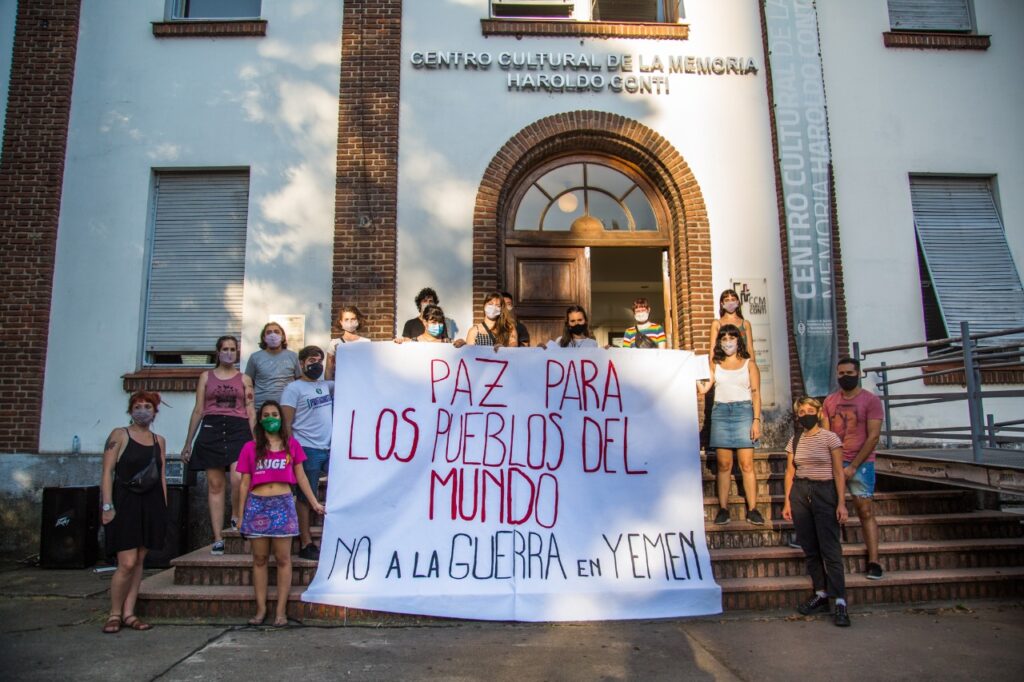 CENTRO CULTURAL DE LA MEMORIA
HAROLDO CONTI
CENTRO CULTURAL DE LA
MEMORIA HAROLDO CONTI
CCM
HAROLDO
CONTI
PAZ PARA
LOS PUEBLOS DEL
MUNDO
NO A LA GUERRA EN YEMEN
AUGE
PEAVEY